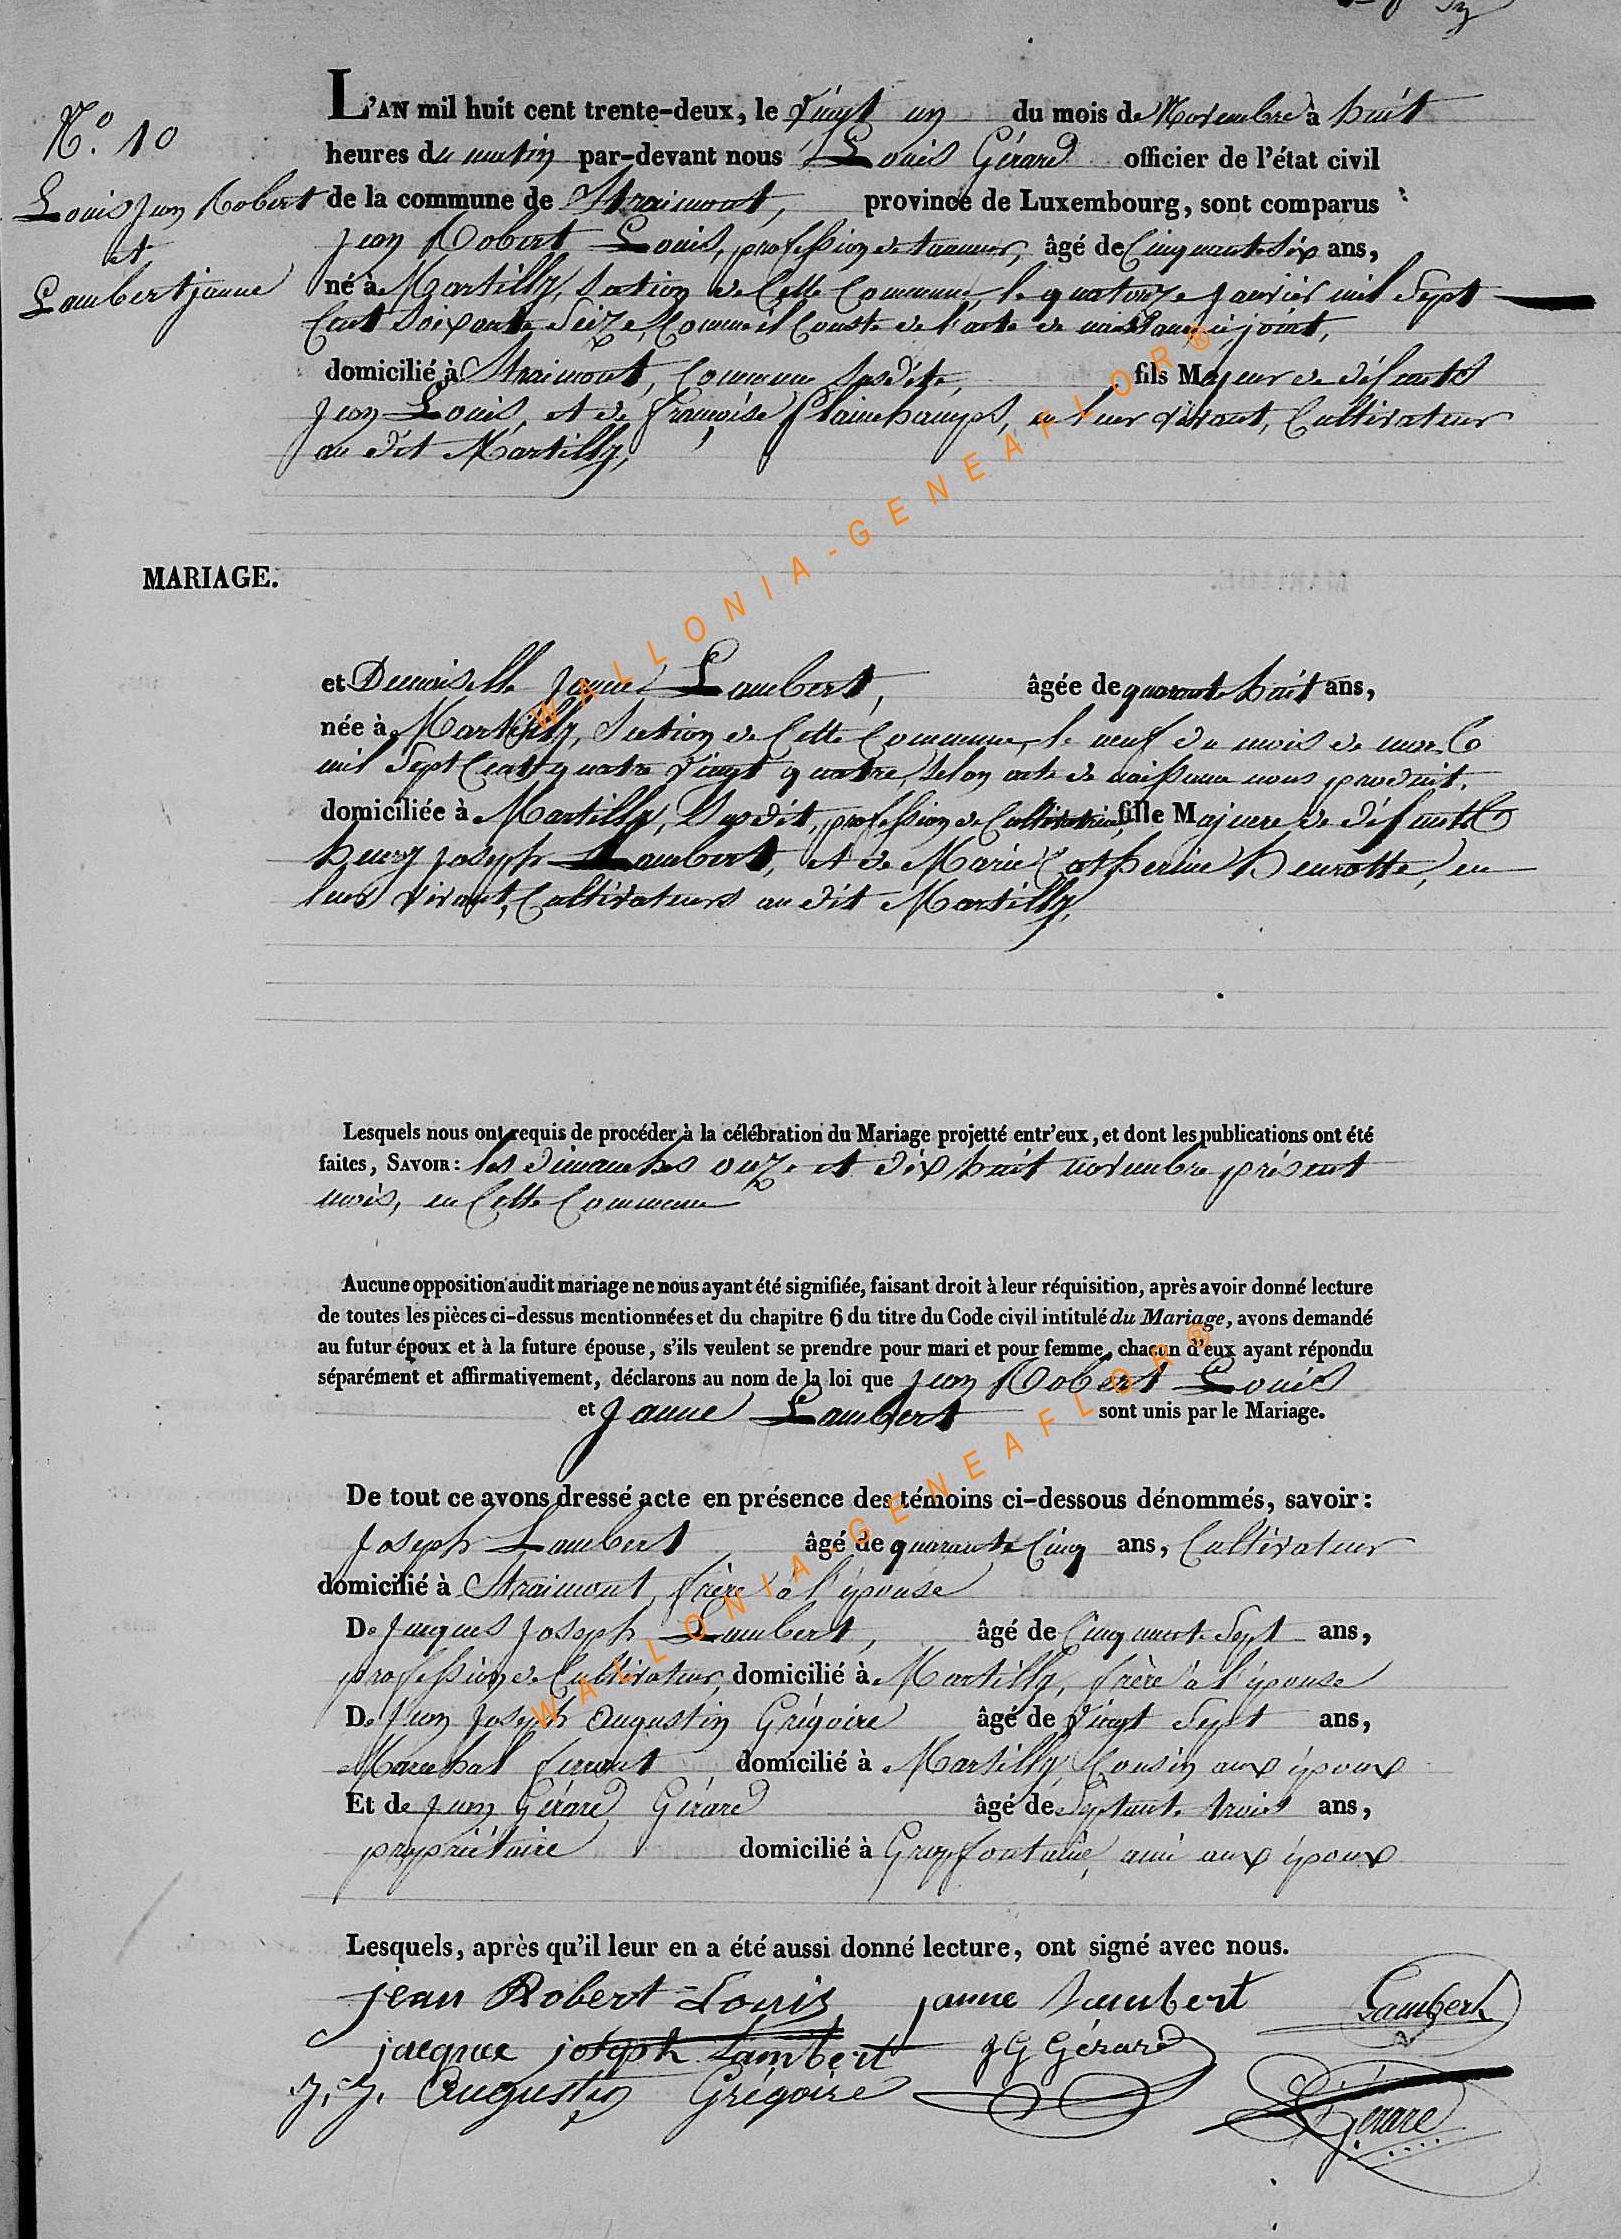 N.º 10
Louis Jean Robert
et
Lambert janne
L'AN mil huit cent trente-deux, le vingt un du mois de Novembre à huit
heures du matin par-devant nous Louis Gérard officier de l'état civil
de la commune de Straimont, province de Luxembourg, sont comparus
Jean Robert Louis, profession de tanneur, âgé de Cinquante Six ans,
né à Martilly, Section de Cette Commune, le quatorze janvier mil Sept
Cent Soixante Seize, Comme il Conste de l'acte de naissance ci joint,
domicilié à Straimont, Commune Susdite, fils Majeur de défunts
Jean Louis, et de françoise flainchamps, en leur vivant, Cultivateur
au dit Martilly,
MARIAGE.
et Demoiselle Janne Lambert, âgée de quarante huit ans,
née à Martilly, Section de Cette Commune, le neuf du mois de mars
mil Sept Cent quatre vingt quatre, Selon acte de naissance nous produit.
domiciliée à Martilly, Susdit, profession de Cultivatrice, fille Majeure de défunts
henry joseph Lambert, et de Marie Catherine henrotte, en
leur vivant, Cultivateurs au dit Martilly,
Lesquels nous ont requis de procéder à la célébration du Mariage projetté entr'eux, et dont les publications ont été
faites, SAVOIR : les dimanches onze et dix huit novembre présent
mois, en Cette Commune
Aucune opposition audit mariage ne nous ayant été signifiée, faisant droit à leur réquisition, après avoir donné lecture
de toutes les pièces ci-dessus mentionnées et du chapitre 6 du titre du Code civil intitulé du Mariage, avons demandé
au futur époux et à la future épouse, s'ils veulent se prendre pour mari et pour femme, chacun d'eux ayant répondu
séparément et affirmativement, déclarons au nom de la loi que Jean Robert Louis
et Janne Lambert sont unis par le Mariage.
De tout ce avons dressé acte en présence des témoins ci-dessous dénommés, savoir :
Joseph Lambert âgé de quarante Cinq ans, Cultivateur
domicilié à Straimont, frère à l'épouse
De Jacques Joseph Lambert, âgé de Cinquante Sept ans,
profession de Cultivateur, domicilié à Martilly, frère à l'épouse
De Jean Joseph Augustin Grégoire âgé de vingt Sept ans,
Marechal ferrant domicilié à Martilly Cousin aux époux
Et de Jean Gérard Gérard âgé de Septante trois ans,
propriétaire domicilié à Grapfontaine, ami aux époux
Lesquels, après qu'il leur en a été aussi donné lecture, ont signé avec nous.
jean Robert Louis janne Lambert Lambert
jacque joseph Lambert JG Gérard
J. J. Augustin Grégoire L Gérard
WALLONIA-GENEAFLOR®
WALLONIA-GENEAFLOR®